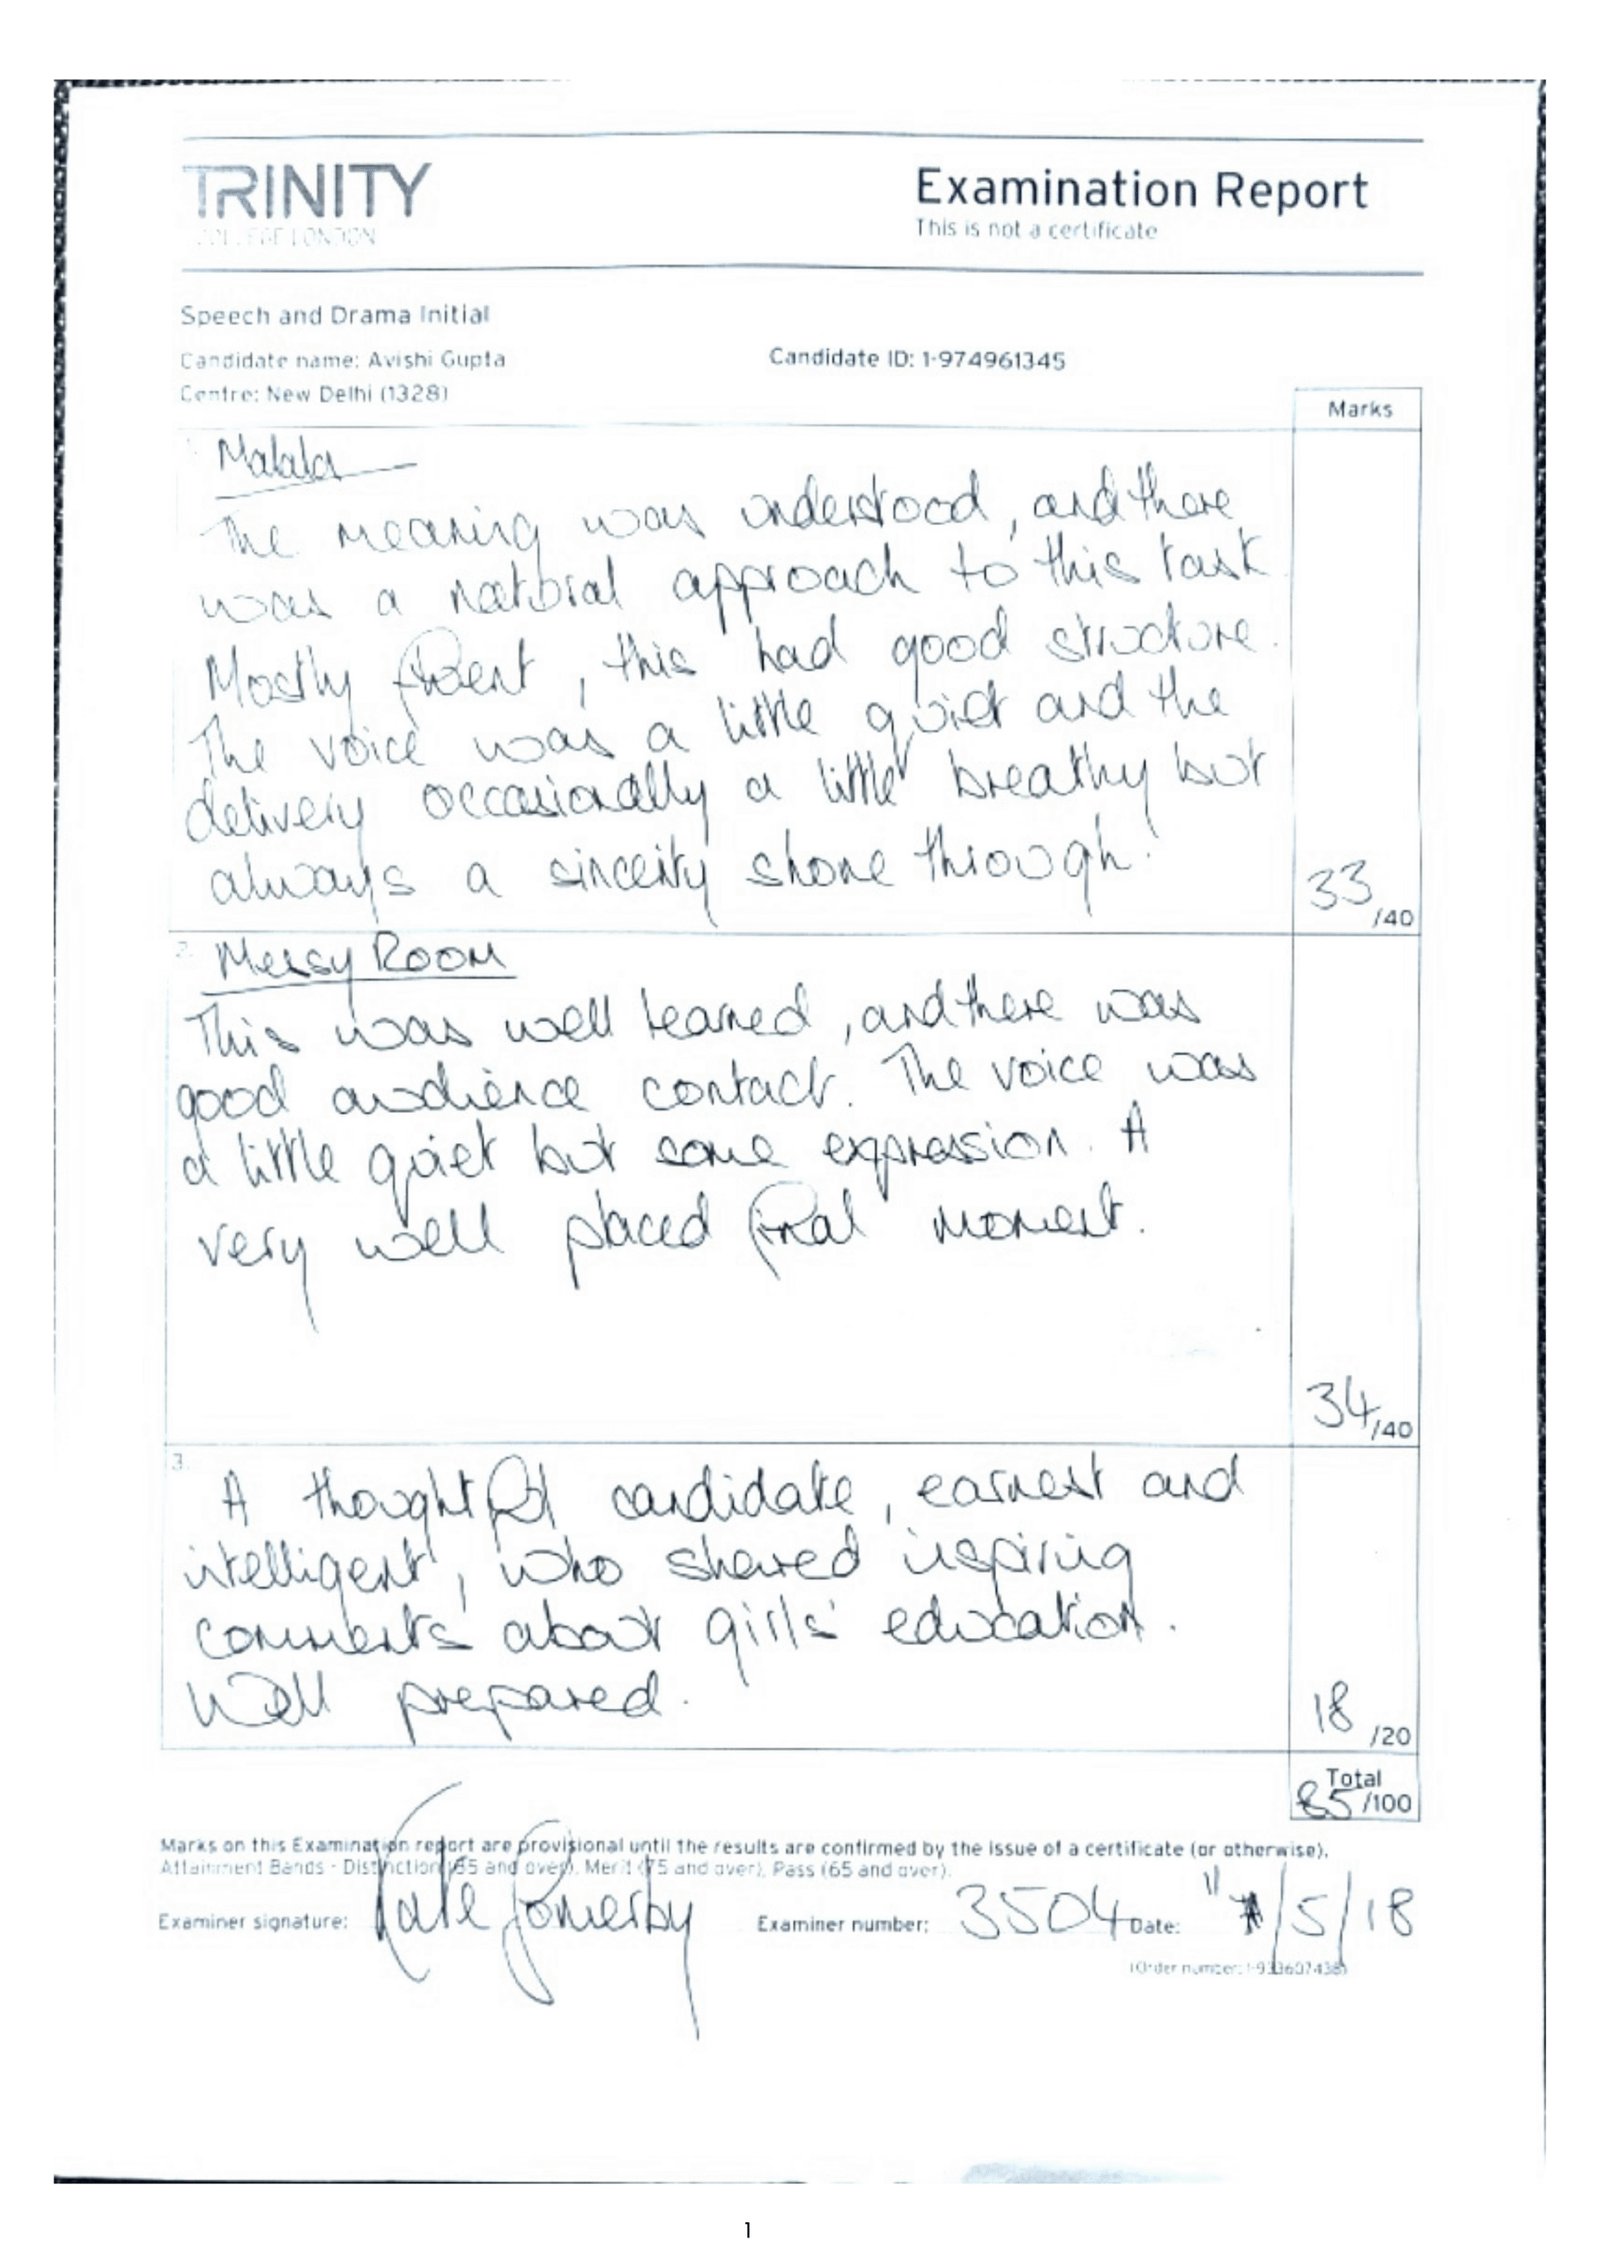 TRINITY
COLLEGE LONDON
Examination Report
This is not a certificate
Speech and Drama Initial
Candidate name: Avishi Gupta
Candidate ID: 1-974961345
Centre: New Delhi (1328)
Marks
1. Malala
The meaning was understood, and there
was a natural approach to this task
Mostly fluent, this had good structure.
The voice was a little quiet and the
delivery occasionally a little breathy but
always a sincerity shone through.
33 /40
2. Messy Room
This was well learned, and there was
good audience contact. The voice was
a little quiet but some expression. A
very well placed final moment.
34 /40
3.
A thoughtful candidate, earnest and
intelligent, who shared inspiring
comments about girls' education.
Well prepared.
18 /20
Total
85 /100
Marks on this Examination report are provisional until the results are confirmed by the issue of a certificate (or otherwise).
Attainment Bands - Distinction (85 and over), Merit (75 and over), Pass (65 and over).
Examiner signature: Kate
Examiner number: 3504 Date: 11/5/18
(Order number: 1-933607438)
1